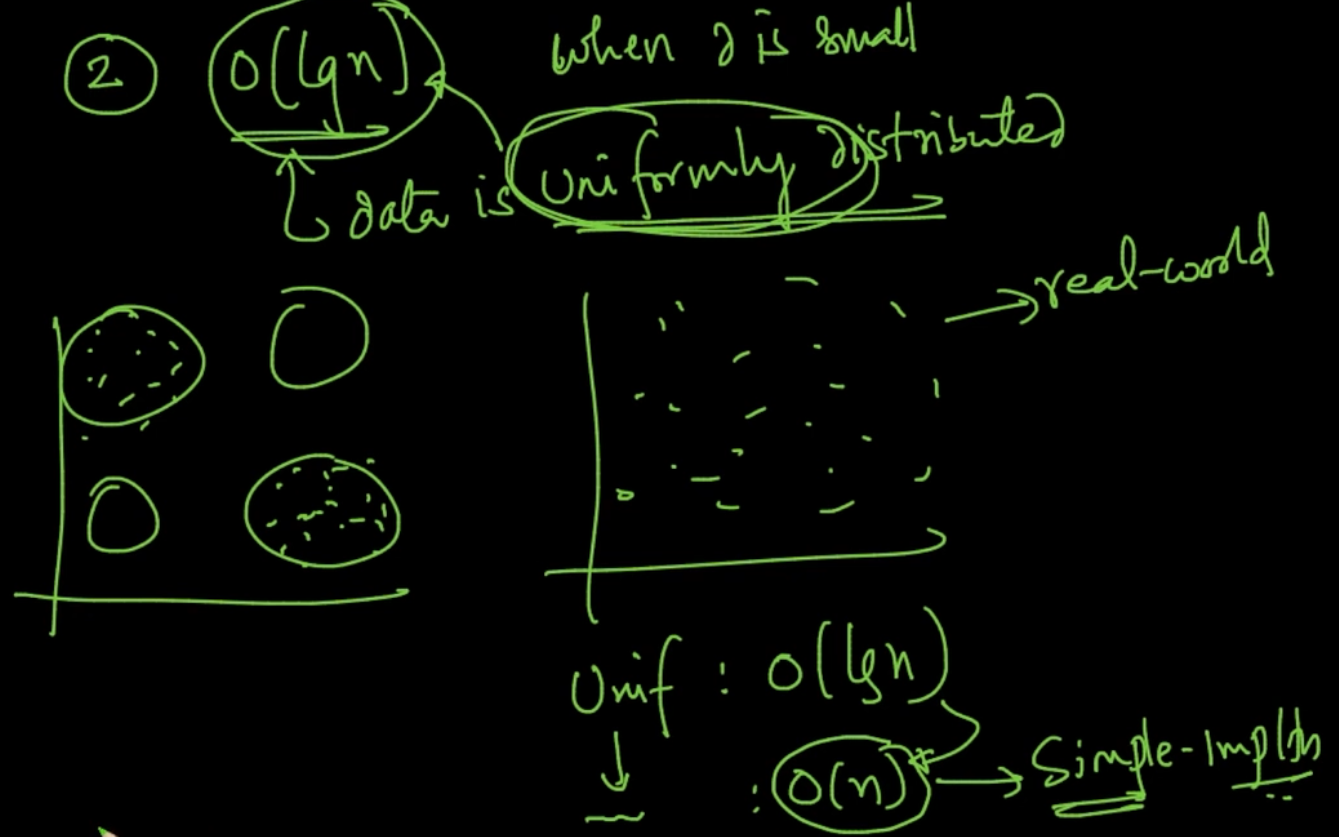 2 O(lgn) when d is small
data is uniformly distributed
→ real-world
Unif : O(lgn)
: O(n) → Simple-Impl